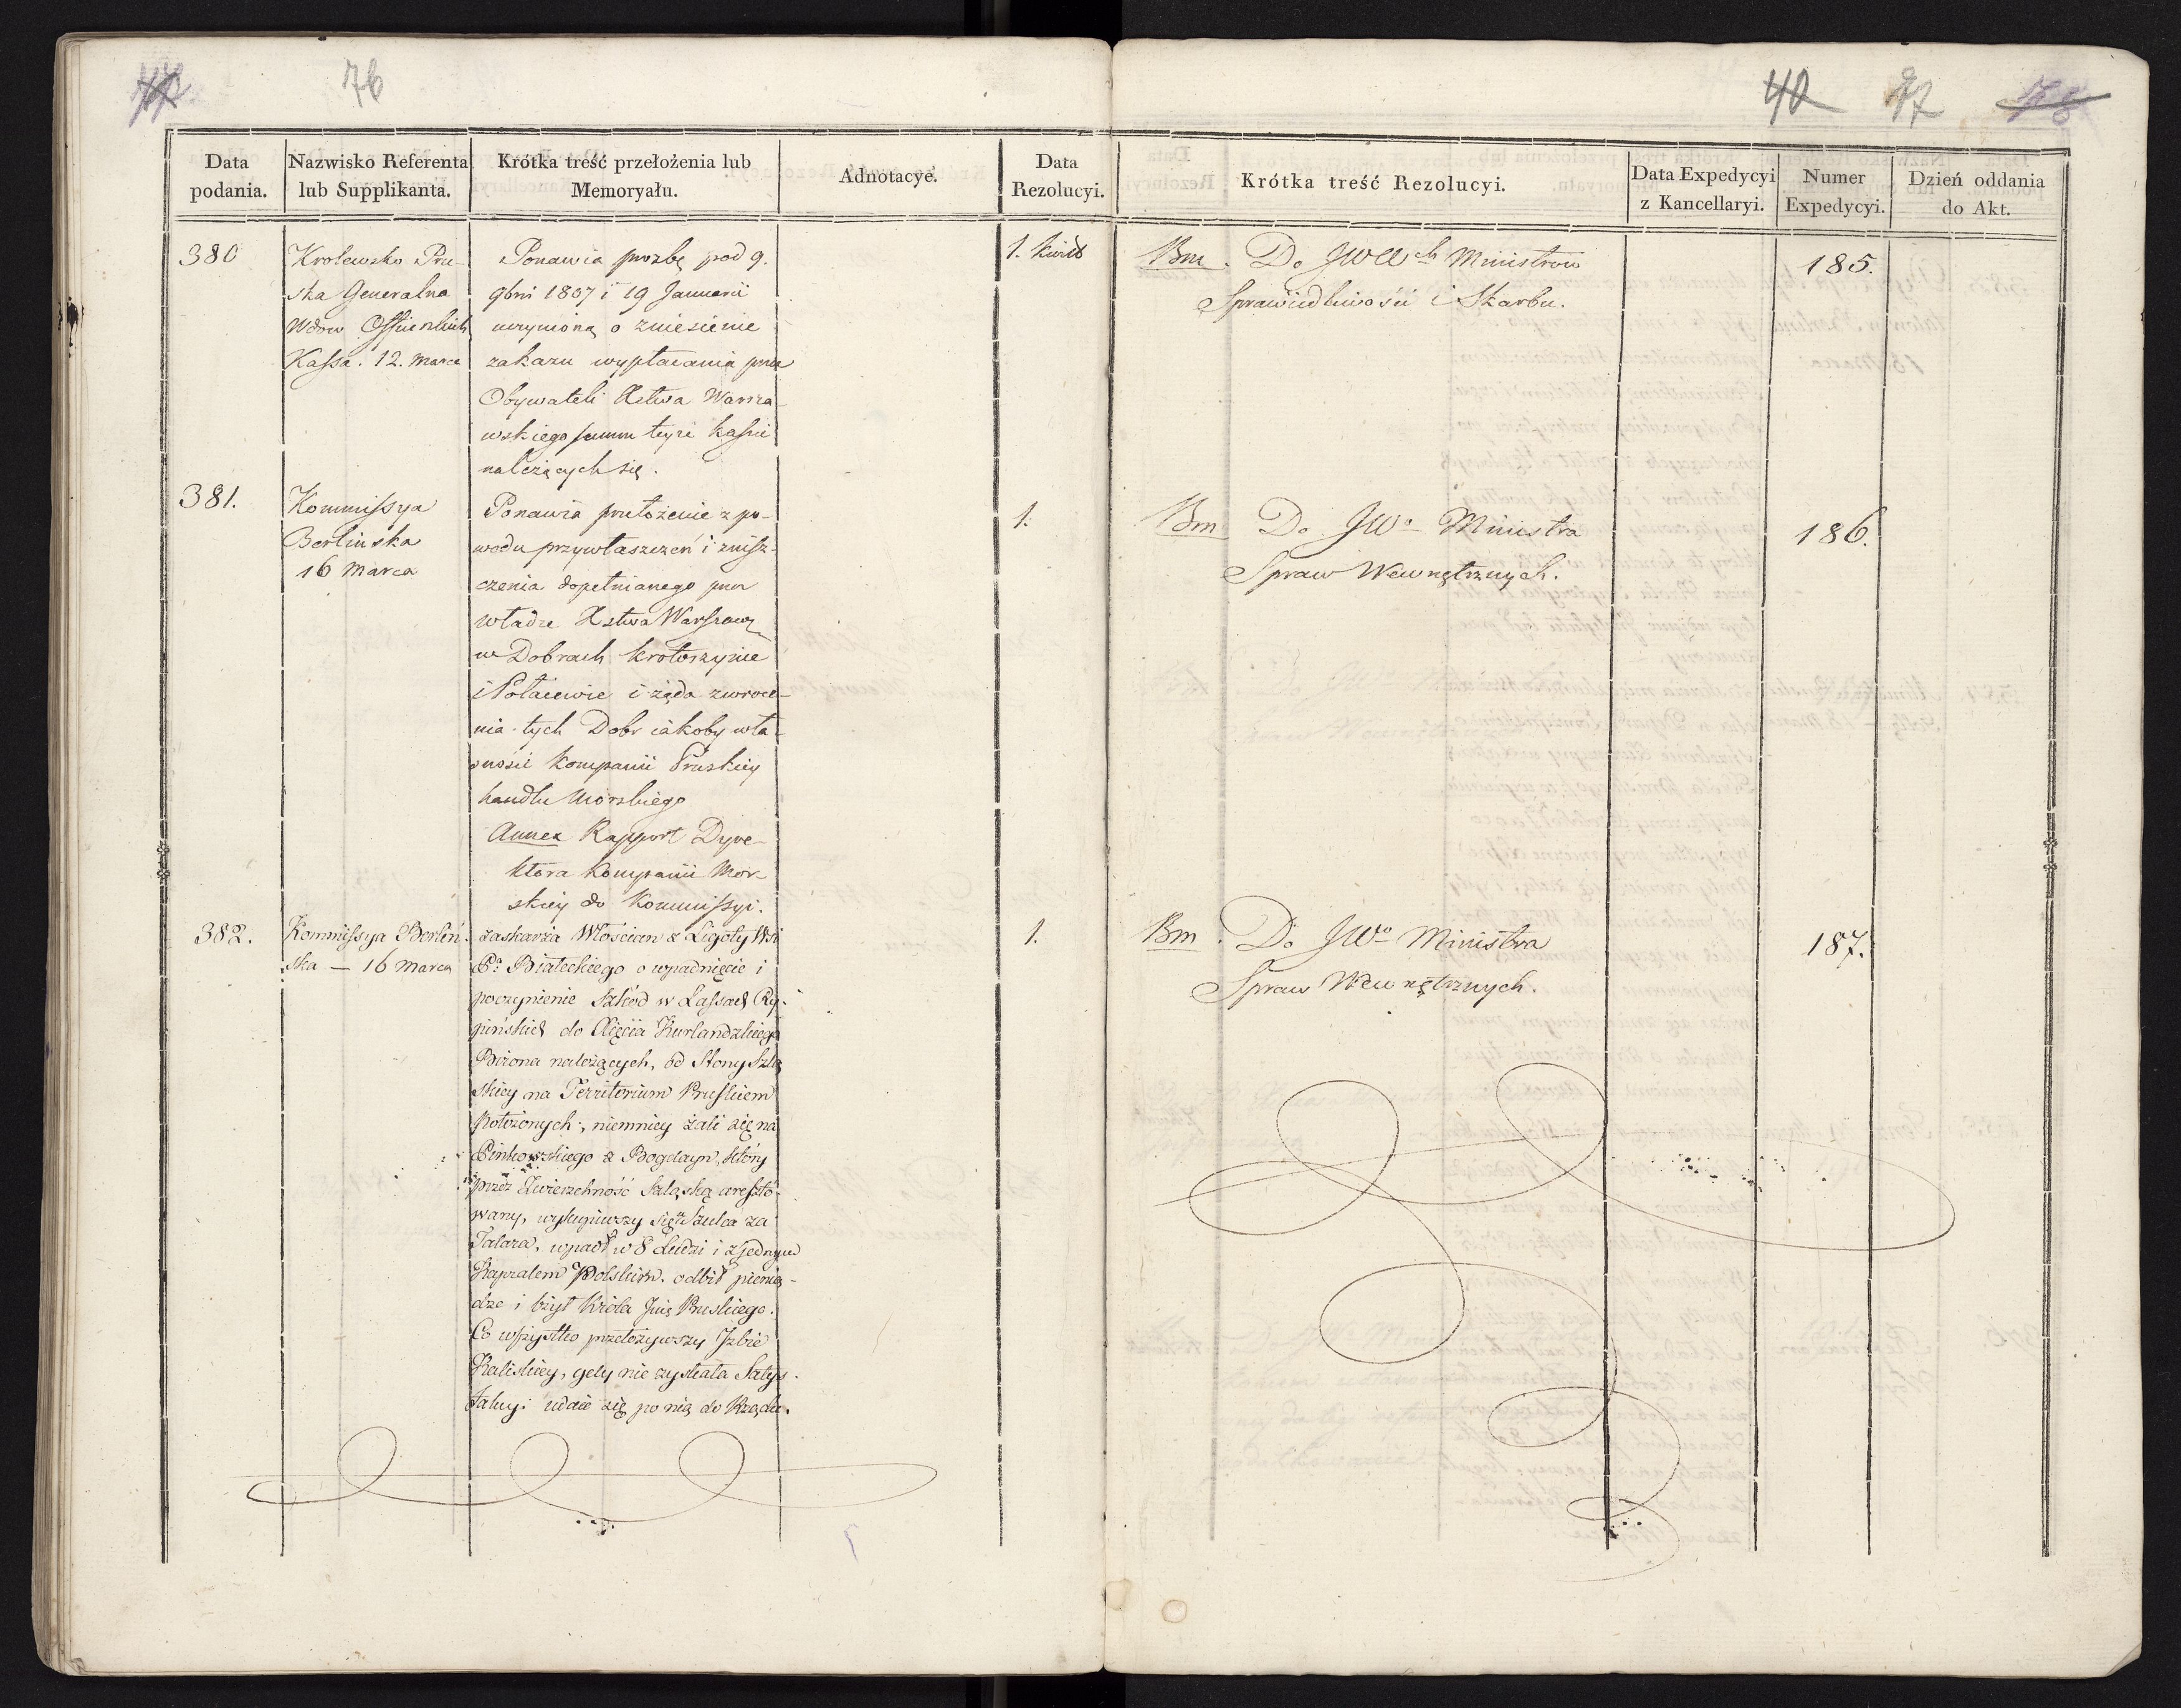 76
40 77
Data podania.
Nazwisko Referenta lub Supplikanta.
Krótka treść przełożenia lub Memoryału.
Adnotacye.
Data Rezolucyi.
Krótka treść Rezolucyi.
Data Expedycyi z Kancellaryi.
Numer Expedycyi.
Dzień oddania do Akt.
380
Krolewsko Pru-
ska Generalna
Wdow
Kassa. 12. Marca
Ponawia prozbę pod 9.
9bri 1807 i 19 Januarii
uczynioną o zniesienie
zakazu wypłacania przez
Obywateli Xstwa Warsza-
wskiego summ teyże kassie
należących się.
1. Kwiet
Bm. Do JWWch Ministrow
Sprawiedliwości i Skarbu.
185.
381.
Kommissya
Berlinska
16 Marca
Ponawia przełożenie z po-
wodu przywłaszczeń i znisz-
czenia dopełnianego przez
władze Xstwa Warszaw
w Dobrach Krotoszynie
i i żąda zwroce-
nia tych Dobr iakoby wła-
sności Kompanii Pruskiey
handlu Morskiego
Annex Rapport Dyre-
ktora Kompanii Mor-
skiey do Kommissyi.
1.
Bm Do JWo Ministra
Spraw Wewnętrznych.
186.
382.
Kommissya Berliń-
ska — 16 Marca
zaskarża Włościan z Ligoty Wsi
Po Białeckiego o wpadnięcie i
poczynienie szkód w Lassach Ry-
pińskich do Xięcia Kurlandzkiego
Birona należących, od Strony Szlą
skiey na Territorium Pruskiem
Położonych, niemniey żali się na
Pinkowskiego z Bogdayn, który
przez Zwierzchność Szląską areszto-
wany, wykupiwszy się u Szulca za
Talara, wpadł w 8 Ludzi i z jednym
Kapralem Polskim. odbił pienią-
dze i lżył Króla Jmć Pruskiego.
Co wszystko przełożywszy Izbie
Kaliskiey, gdy nie zyskała Satys-
fakcyi udaie się po nią do Rządu.
1.
Bm. Do JWo Ministra
Spraw Wewnętrznych.
187.